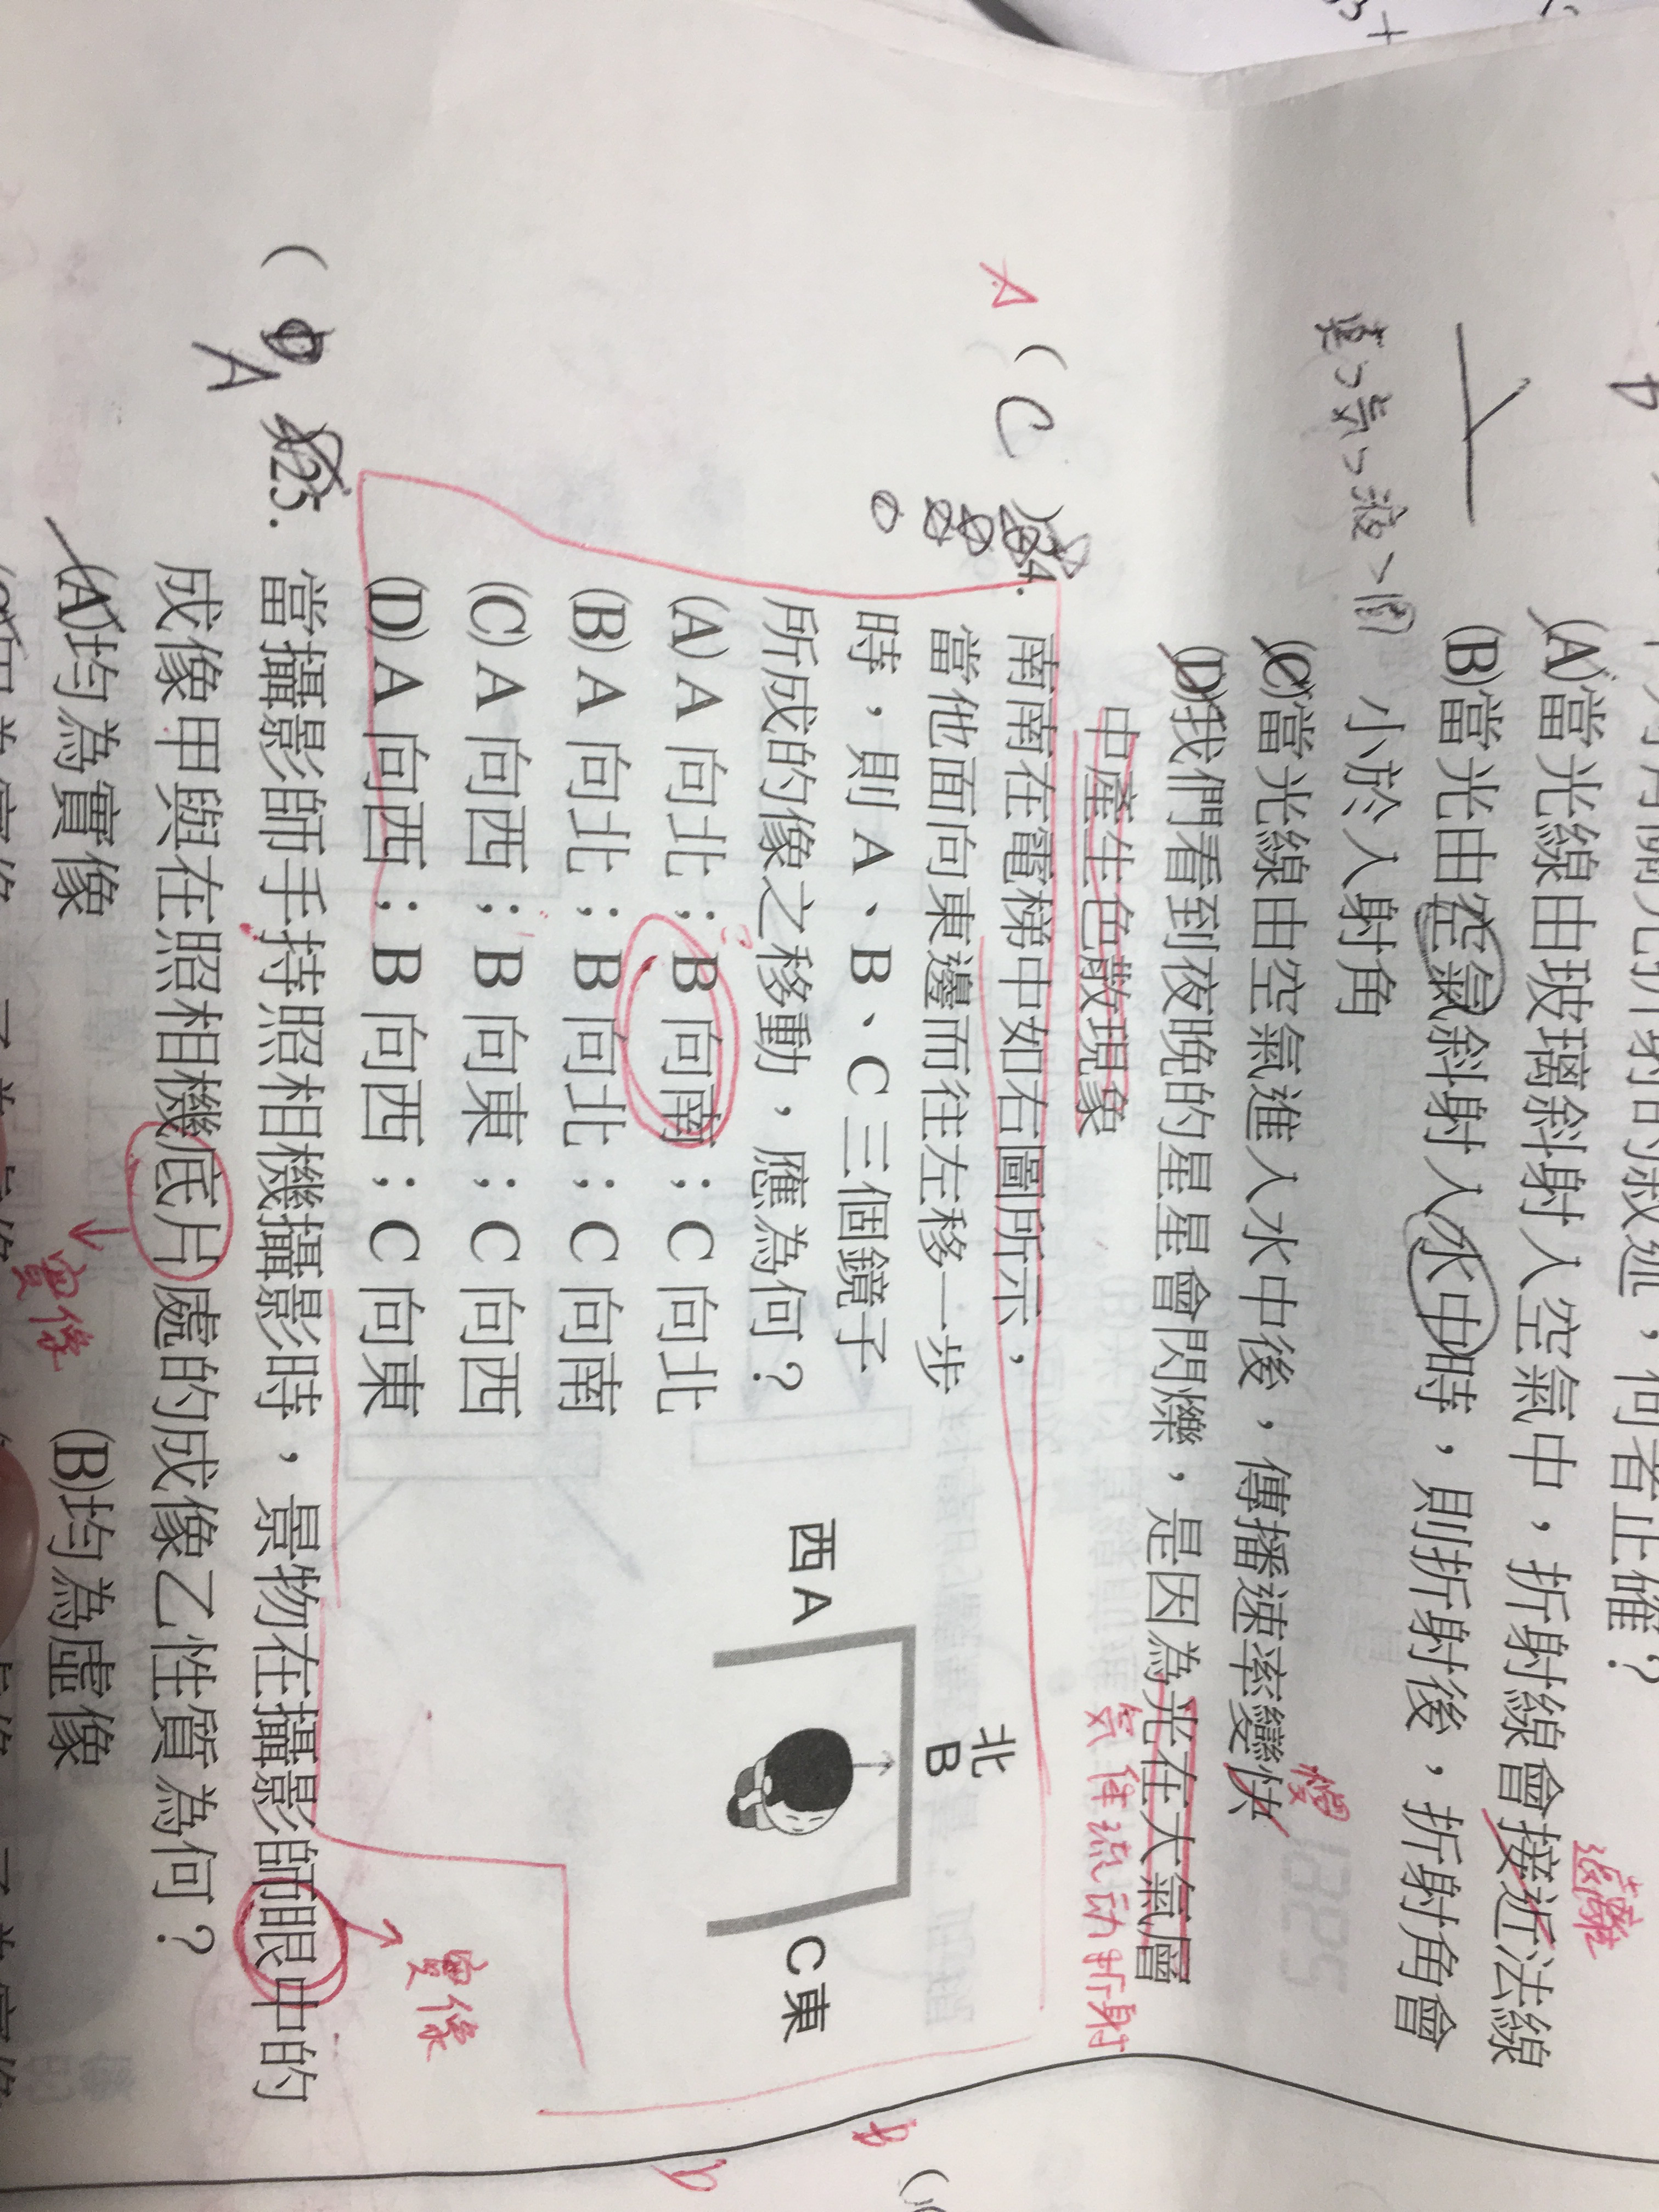 (A)當光線由玻璃斜射入空氣中，折射線會接近法線
遠離
(B)當光由空氣斜射入水中時，則折射後，折射角會
小於入射角
真>氣>液>固
(C)當光線由空氣進入水中後，傳播速率變快
慢
(D)我們看到夜晚的星星會閃爍，是因為光在大氣層
中產生色散現象
A ( C ) 24. 南南在電梯中如右圖所示，
當他面向東邊而往左移一步
時，則 A、B、C 三個鏡子
所成的像之移動，應為何？
(A) A 向北；B 向南；C 向北
(B) A 向北；B 向北；C 向南
(C) A 向西；B 向東；C 向西
(D) A 向西；B 向西；C 向東
北
B
西 A
C 東
( A ) 25. 當攝影師手持照相機攝影時，景物在攝影師眼中的
實像
成像甲與在照相機底片處的成像乙性質為何？
實像
(A)均為實像 (B)均為虛像